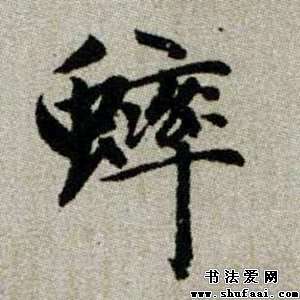 蟀
书法爱网
www.shufaai.com